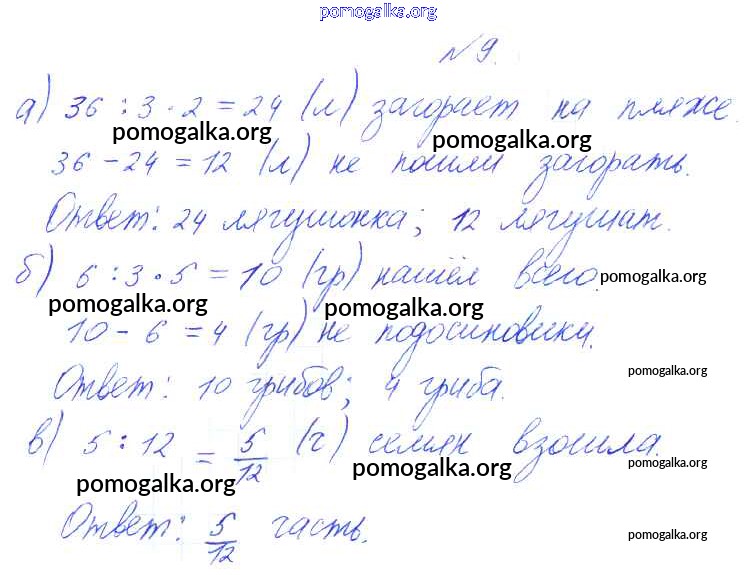 pomogalka.org
№ 9.
а) 36 : 3 · 2 = 24 (л) загорает на пляже.
pomogalka.org pomogalka.org
36 - 24 = 12 (л) не пошли загорать.
Ответ: 24 лягушонка; 12 лягушат.
б) 6 : 3 · 5 = 10 (гр) нашёл всего. pomogalka.org
pomogalka.org pomogalka.org
10 - 6 = 4 (гр) не подосиновики.
pomogalka.org
Ответ: 10 грибов; 4 гриба.
в) 5 : 12 = 5/12 (ч) семян взошла.
pomogalka.org pomogalka.org
pomogalka.org
Ответ: 5/12 часть.
pomogalka.org